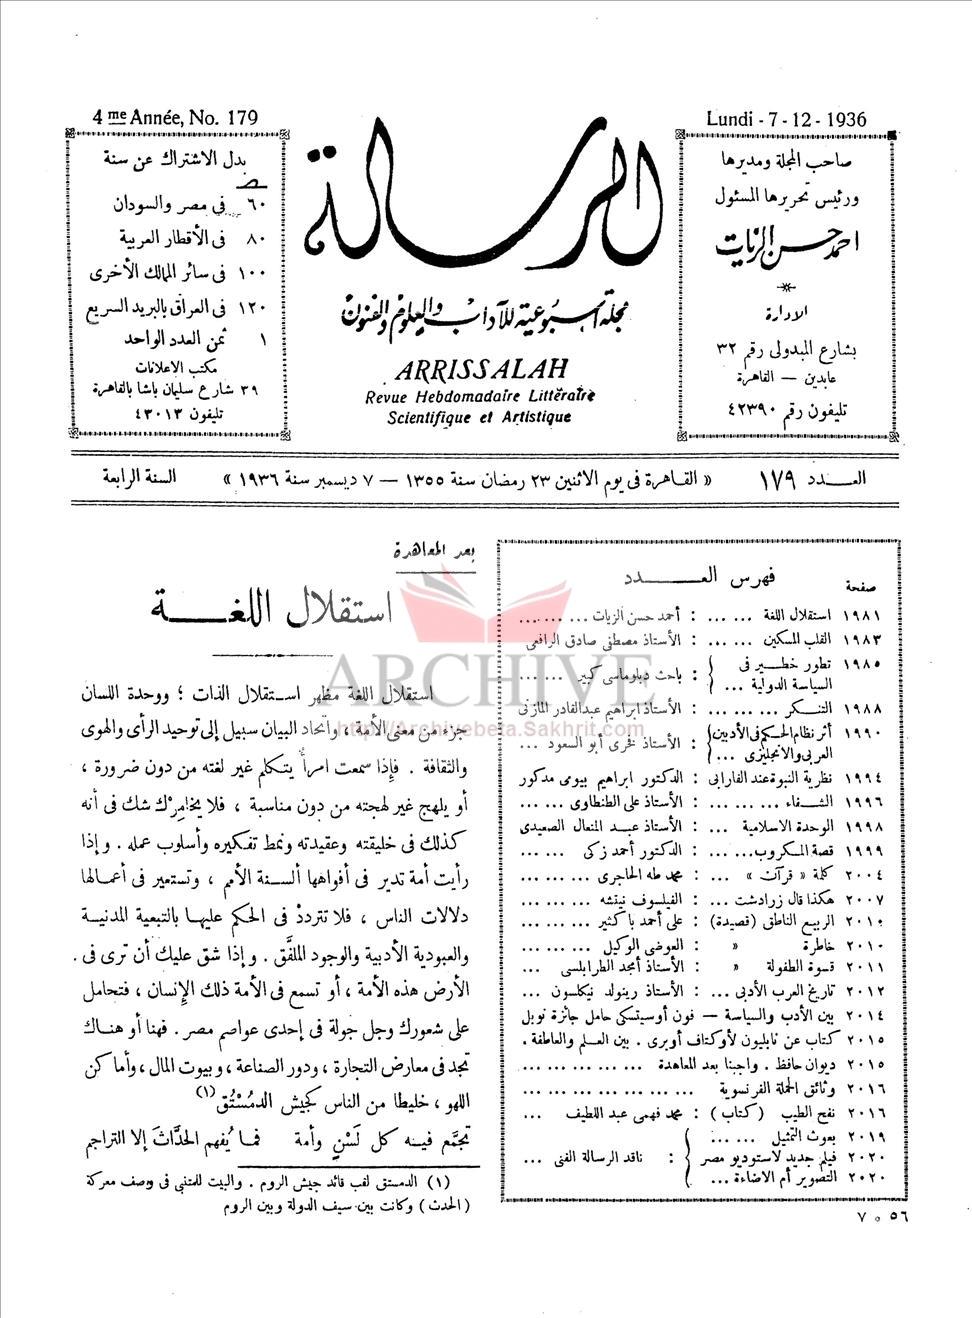 4me Année, No. 179
Lundi - 7 - 12 - 1936
صاحب المجلة ومديرها
ورئيس تحريرها المسئول
احمد حسن الزيات
الادارة
بشارع المبدولى رقم ٣٢
عابدين — القاهرة
تليفون رقم ٤٢٣٩٠
الرسالة
مجلة أسبوعية للآداب والعلوم والفنون
ARRISSALAH
Revue Hebdomadaire Littéraire
Scientifique et Artistique
بدل الاشتراك عن سنة
٦٠ فى مصر والسودان
٨٠ فى الأقطار العربية
١٠٠ فى سائر الممالك الأخرى
١٢٠ فى العراق بالبريد السريع
١ ثمن العدد الواحد
مكتب الاعلانات
٣٩ شارع سليمان باشا بالقاهرة
تليفون ٤٣٠١٣
العـــدد ١٧٩ « القاهرة فى يوم الاثنين ٢٣ رمضان سنة ١٣٥٥ — ٧ ديسمبر سنة ١٩٣٦ » السنة الرابعة
فهرس العـــدد
صفحة
١٩٨١ استقلال اللغة ... ... : أحمد حسن الزيات ... ... ...
١٩٨٣ القلب المسكين ... ... : الأستاذ مصطفى صادق الرافعى
١٩٨٥ تطور خطـــير فى السياسة الدولية ... : باحث دبلوماسى كبير ... ...
١٩٨٨ التنــكر ... ... ... : الأستاذ ابراهيم عبد القادر المازنى
١٩٩٠ أثر نظام الحكم فى الأدبين العربى والانجليزى ... : الأستاذ فخرى أبو السعود ...
١٩٩٤ نظرية النبوة عند الفارابى : الدكتور ابراهيم بيومى مدكور
١٩٩٦ الشــفاء ... ... ... : الأستاذ على الطنطاوى ... ...
١٩٩٨ الوحدة الاسلامية ... : الأستاذ عبد المتعال الصعيدى
١٩٩٩ قصة المكروب... ... : الدكتور أحمد زكى ... ...
٢٠٠٤ كلمة « قرآن » ... ... : محمد طه الحاجرى ... ... ...
٢٠٠٧ هكذا قال زرادشت ... : الفيلسوف نيتشه ... ... ...
٢٠١٠ الربيع الناطق (قصيدة) : على أحمد باكثير ... ... ...
٢٠١٠ خاطرة » : العوضى الوكيل ... ... ...
٢٠١١ قسوة الطفولة » : الأستاذ أمجد الطرابلسى ...
٢٠١٢ تاريخ العرب الأدبى ... : الأستاذ رينولد نيكلسون ...
٢٠١٤ بين الأدب والسياسة — فون أوسيتسكى حامل جائزة نوبل
٢٠١٥ كتاب عن نابليون لأوكتاف أوبرى . بين العلم والعاطفة .
٢٠١٥ ديوان حافظ . واجبنا بعد المعاهدة ... ... ... ...
٢٠١٦ وثائق الحملة الفرنسوية ... ... ... ... ... ...
٢٠١٦ نفح الطيب (كتاب) : محمد فهمى عبد اللطيف ...
٢٠١٩ بعوث التمثيل ... ...
٢٠٢٠ فيلم جديد لاستوديو مصر : ناقد الرسالة الفنى ...
٢٠٢٠ التصوير أم الاضاءة ...
٧ ٥ ٥٦
بعد المعاهدة
استقلال اللغـــة
استقلال اللغة مظهر استقلال الذات ؛ ووحدة اللسان
جزء من معنى الأمة ، واتحاد البيان سبيل إلى توحيد الرأى والهوى
والثقافة . فإذا سمعت امرأً يتكلم غير لغته من دون ضرورة ،
أو يلهج غير لهجته من دون مناسبة ، فلا يخامرْك شك فى أنه
كذلك فى خليقته وعقيدته ونمط تفكيره وأسلوب عمله . وإذا
رأيت أمة تدير فى أفواهها ألسنة الأمم ، وتستعير فى أعمالها
دلالات الناس ، فلا تترددْ فى الحكم عليها بالتبعية المدنية
والعبودية الأدبية والوجود الملفَّق . وإذا شق عليك أن ترى فى
الأرض هذه الأمة ، أو تسمع فى الأمة ذلك الإنسان ، فتحامل
على شعورك وجل جولة فى إحدى عواصم مصر . فهنا أو هناك
تجد فى معارض التجارة ، ودور الصناعة ، وبيوت المال ، وأماكن
اللهو ، خليطا من الناس كجيش الدمُسْتُق(١)
تجمَّع فيه كل لَسْنٍ وأمة فما يُفهم الحدَّاثَ إلا التراجم
(١) الدمستق لقب قائد جيش الروم . والبيت للمتنبى فى وصف معركة
(الحدث) وكانت بين سيف الدولة وبين الروم
ARCHIVE
http://Archivebeta.Sakhrit.com